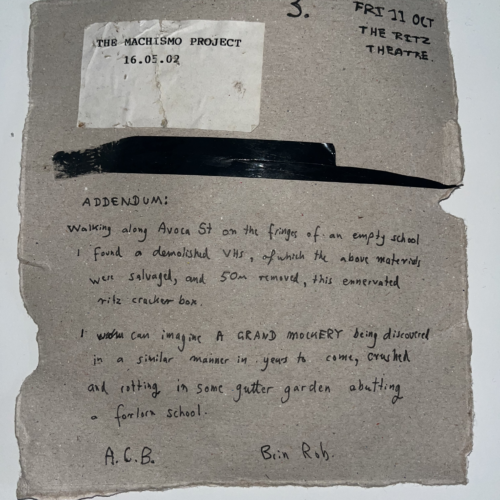 3.
FRI 11 OCT
THE RITZ
THEATRE.
THE MACHISMO PROJECT
16.05.02
ADDENDUM:
Walking along Avoca St on the fringes of an empty school
I found a demolished VHS, of which the above materials
were salvaged, and 50m removed, this ennervated
ritz cracker box.
I can imagine A GRAND MOCKERY being discovered
in a similar manner in years to come, crushed
and rotting in some gutter garden abutting
a forlorn school.
A.C.B.